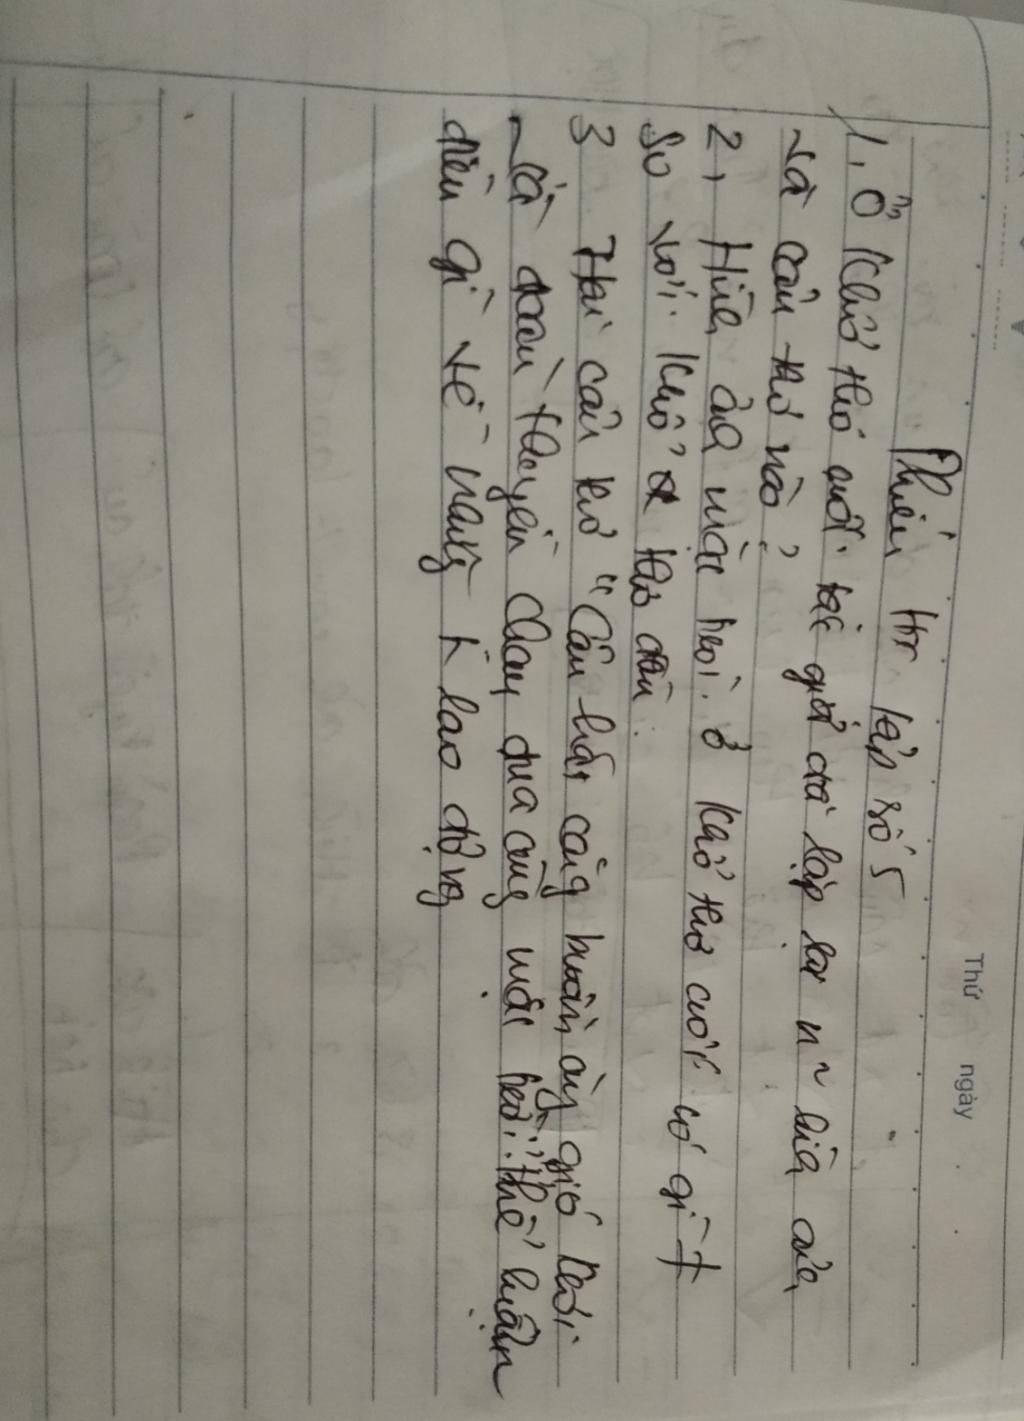 Thứ ngày
Phiếu HT tập số 5
1, Ở khổ thơ cuối tác giả đã lặp lại n~
và câu thơ nào?
2, Hình ảnh mặt trời ở khổ thơ cuối có gì ≠
So với khổ thơ đầu
3 Hai câu thơ "Câu hát căng buồm cùng gió khơi
Đoàn thuyền chạy đua cùng mặt trời" thể hiện
điều gì về người lao động